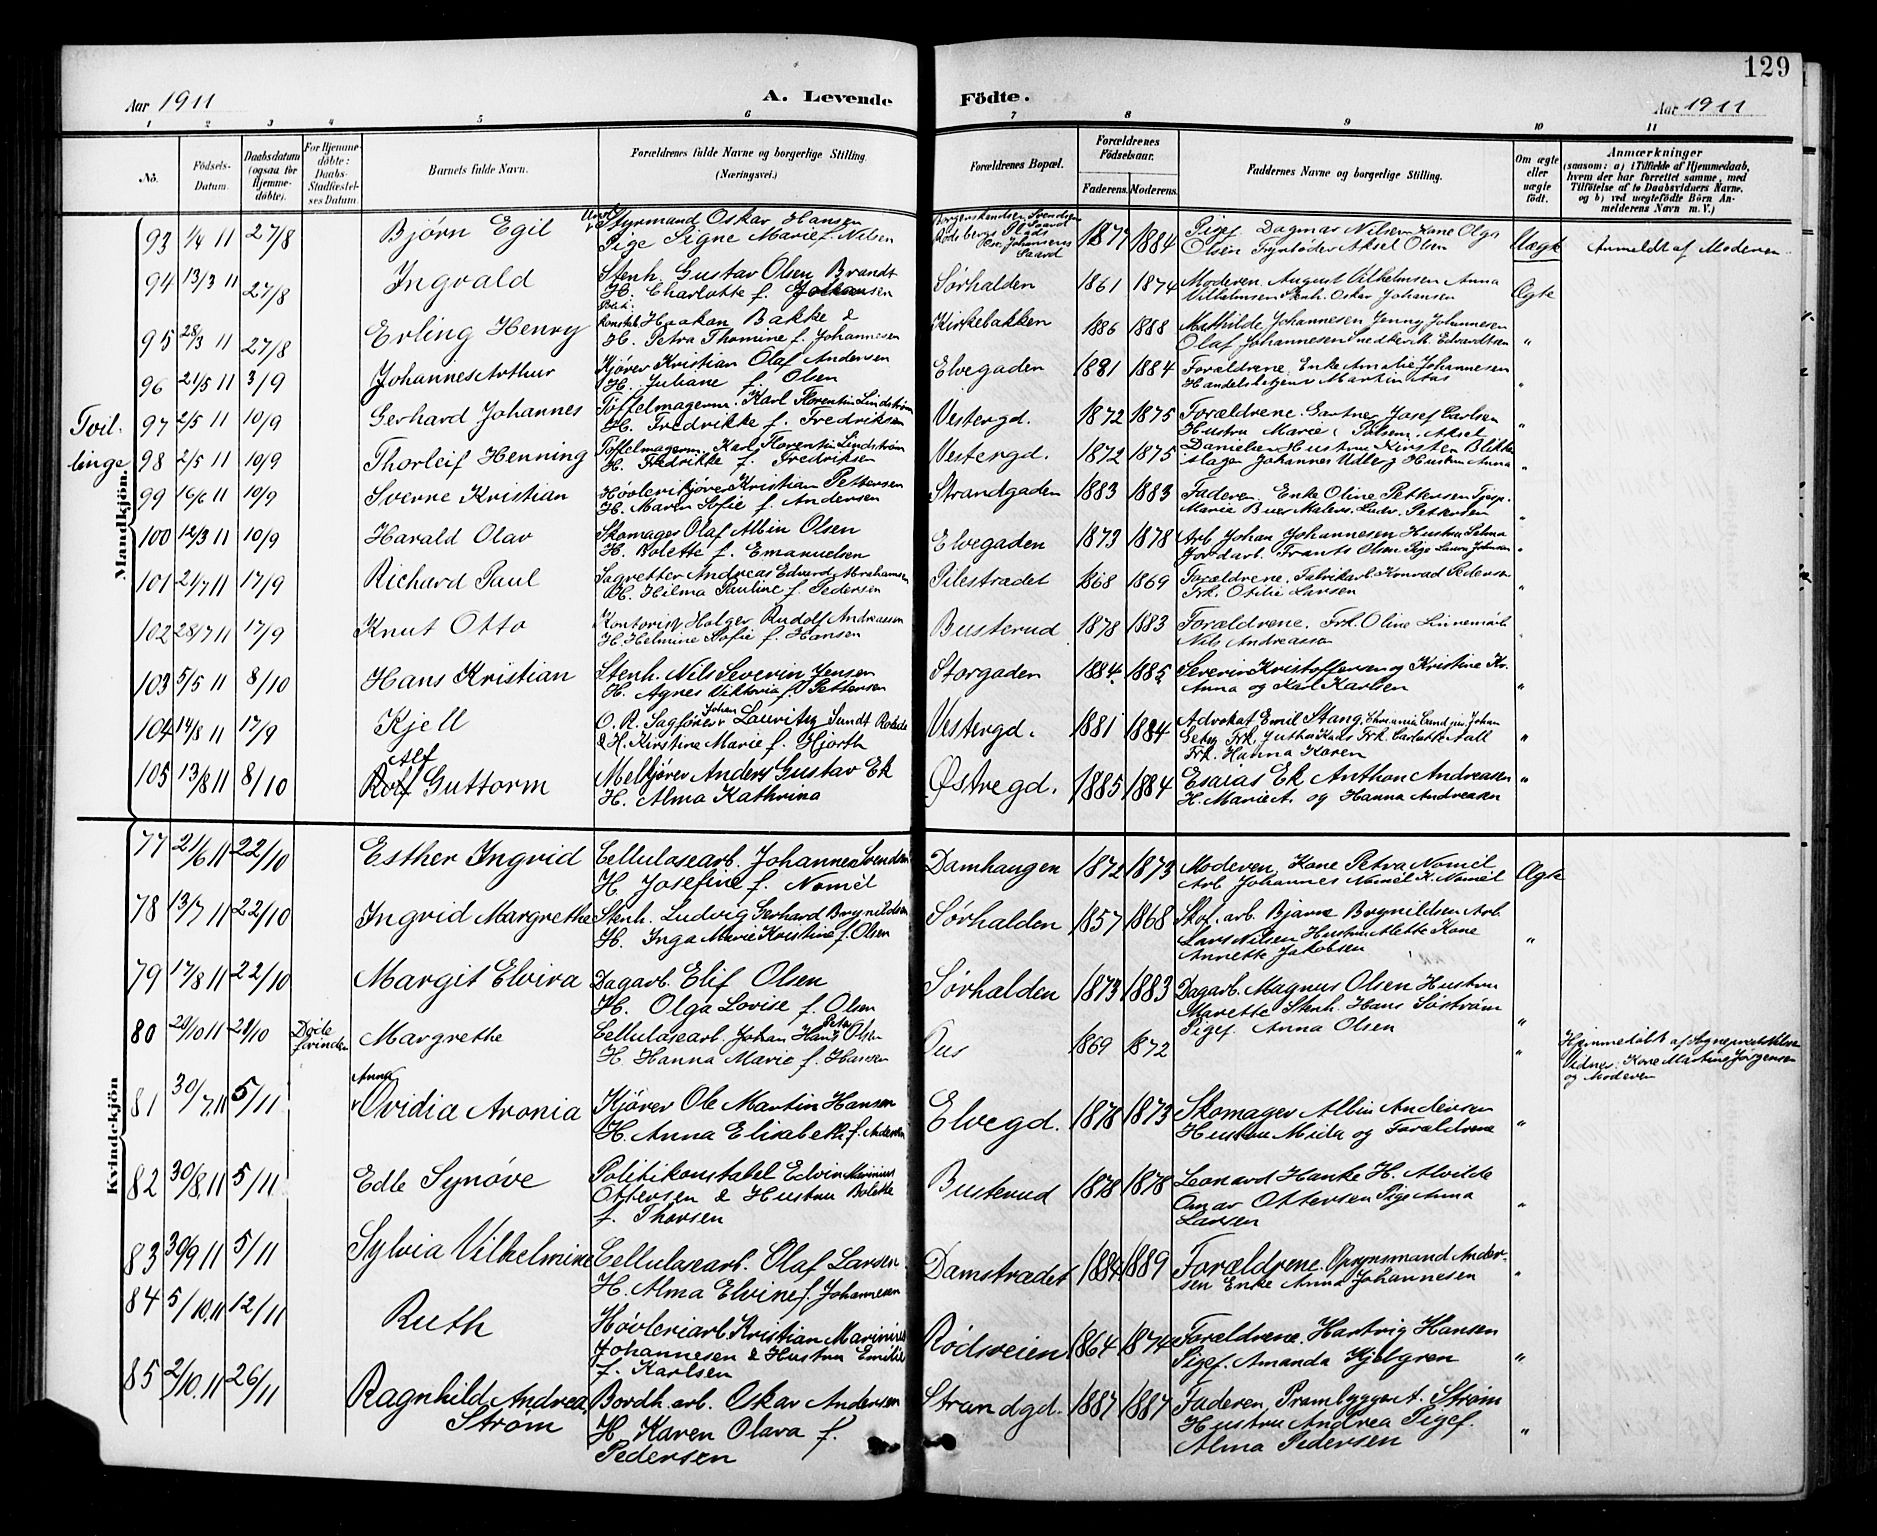 129
Aar 1911
A. Levende Födte.
Aar 1911
1 2 3 4 5 6 7 8 9 10 11
No.
Födsels-Datum.
Daabsdatum (ogsaa for Hjemme-döbte).
For Hjemme-döbte: Daabs-Stadfæstel-ses Datum.
Barnets fulde Navn.
Forældrenes fulde Navne og borgerlige Stilling. (Næringsvei.)
Forældrenes Bopæl.
Forældrenes Födselsaar.
Faderens. Moderens.
Faddernes Navne og borgerlige Stilling.
Om ægte eller uægte födt.
Anmærkninger
(saasom: a) i Tilfælde af Hjemmedaab, hvem der har forrettet samme, med Tilföielse af to Daabsvidners Navne. og b) ved uægtefödte Börn An-melderens Navn m. V.)
Mandkjön.
93 1/4 11 27/8 Bjørn Egil Ungk. Styrmand Oskar Hansen
Pige Signe Marie f. Nilsen 1877 1884 Pigef. Dagmar Nilsen Kone Olga
Olsen Fyrbøder Aksel Olsen Uægte Anmeldt af Moderen
94 13/3 11 27/8 Ingvald Stenh. Gustav Olsen Brandt
H. Charlotte f. Johansen Sørhalden 1861 1874 Moderen August Vilhelmsen Anna
Vilhelmsen Stenh. Oskar Johansen Ægte
95 28/3 11 27/8 Erling Henry Konstab. Haakon Bakke &
H. Petra Thomine f. Johannesen Kirkebakken 1886 1888 Mathilde Johannesen Jenny Johannesen
Olaf Johannesen "
96 21/5 11 3/9 Johannes Arthur Kjører Kristian Olaf Andersen
H. Juliane f. Olsen Elvegaden 1881 1884 Forældrene. Enke Amalie Johannesen
Martin Aas "
Tvil-
linge
97 2/5 11 10/9 Gerhard Johannes Tøffelmagerm. Karl Florentin Lindstrøm
H. Fredrikke f. Fredriksen Vestergd. 1872 1875 Forældrene. Gartner Josef Carlsen
Hustru Marie "
98 2/5 11 10/9 Thorleif Henning Tøffelmagerm. Karl Florentin Lindstrøm
H. Fredrikke f. Fredriksen Vestergd. 1872 1875 Danielsen Hustru Kirsten Blikken-
slager Johannes Udberg Hustru Anna "
99 16/6 11 10/9 Sverre Kristian Høvlerikjører Kristian Pettersen
H. Maren Sofie f. Andersen Strandgaden 1883 1883 Faderen. Enke Oline Pettersen Tjp.
Marie "
100 12/3 11 10/9 Harald Olav Skomager Olaf Albin Olsen
H. Bolette f. Emanuelsen Elvegaden 1873 1878 Arb Johan Johannesen Hustru Selma
Jordarb. Frants Olsen Pige Laura Johnsen "
101 21/7 11 17/9 Richard Paul Sagretter Andreas Edvard Abrahamsen
H. Hilma Pauline f. Pedersen Pilestrædet 1868 1869 Forældrene. Fabrikarb. Konrad Pedersen
Frk. Otilie Larsen "
102 28/7 11 17/9 Knut Otto Kontorist Holger Rudolf Andreassen
H. Helmine Sofie f. Hansen Busterud 1878 1883 Forældrene. Frk. Oline
Nils Andreassen "
103 5/5 11 8/10 Hans Kristian Stenh. Nils Severin Jensen
H. Agnes Viktoria f. Pettersen Storgaden 1884 1885 Severin Kristoffersen og Kristine Kr.
Anna og Karl Karlsen "
104 14/8 11 17/9 Kjell O. R. Sagfører Johan Lauritz Sundt
& H. Kirstine Marie f. Hjorth Vestergd. 1881 1884 Advokat Emil Stang,
Frk. Hanna Koren "
105 13/8 11 8/10 Alf Guttorm Melkjører Anders Gustav Ek
H. Alma Kathrina Østregd. 1885 1884 Esaias Ek Anthon Andreasen
H. Marie A. og Hanna Andreasen "
Kvindekjön
77 21/6 11 22/10 Esther Ingrid Cellulosearb. Johannes Svendsen
H Josefine f. Nomèl Damhaugen 1872 1873 Moderen, Kone Petra Nomèl
Arb Johannes Nomèl K. Nomèl Ægte
78 13/7 11 22/10 Ingrid Margrethe Stenh. Ludvig Gerhard Brynildsen
H. Inga Marie Kristine f. Olsen Sørhalden 1857 1868 Skof. arb. Bjarne Brynildsen Arb.
Lars Nilsen Hustru Alette Kone
Annette Jakobsen "
79 17/8 11 22/10 Margit Elvira Dagarb. Elif Olsen
H. Olga Lovise f. Olsen Sørhalden 1873 1883 Dagarb. Magnus Olsen Hustru
Marette Stenh. Hans Søstrøm
Pigef. Anna Olsen "
80 20/10 11 28/10 Døde forinden Margrethe Cellulosearb. Johan Hans Peter Olsen
H. Hanna Marie f. Hansen Ous 1869 1872 " Hjemmedøbt af
Vidner: Kone Martine Jørgensen
og Moderen
81 30/7 11 5/11 Anna Ovidia Aronia Kjører Ole Martin Hansen
H. Anna Elisabeth f. Andersen Elvegd. 1878 1873 Skomager Albin Andersen
Hustru Mida og Forældrene "
82 30/8 11 5/11 Edle Synøve Politikonstabel Edvin Marinius
Ottersen & Hustru Bolette
f. Thorsen Busterud 1878 1878 Leonard Hanke H. Alvilde
Ottersen Pige Anna
Larsen "
83 30/9 11 5/11 Sylvia Vilhelmine Cellulosearb. Olaf Larsen
H. Alma Elvine f. Johannesen Damstrædet 1884 1889 Forældrene. Opsynsmand Ander-
sen Enke Anna Johannesen "
84 5/10 11 12/11 Ruth Høvleriarb Kristian Marinius
Johannesen & Hustru Emilie
f. Karlsen Rødsveien 1864 1874 Forældrene. Hartvig Hansen
Pigef. Amanda Kjølgren "
85 2/10 11 26/11 Ragnhild Andrea
Strøm Bordh. arb. Oskar Andersen
H Karen Olava f.
Pedersen Strandgd. 1887 1887 Faderen, Prambygger A. Strøm
Hustru Andrea Pigef.
Alma Pedersen "